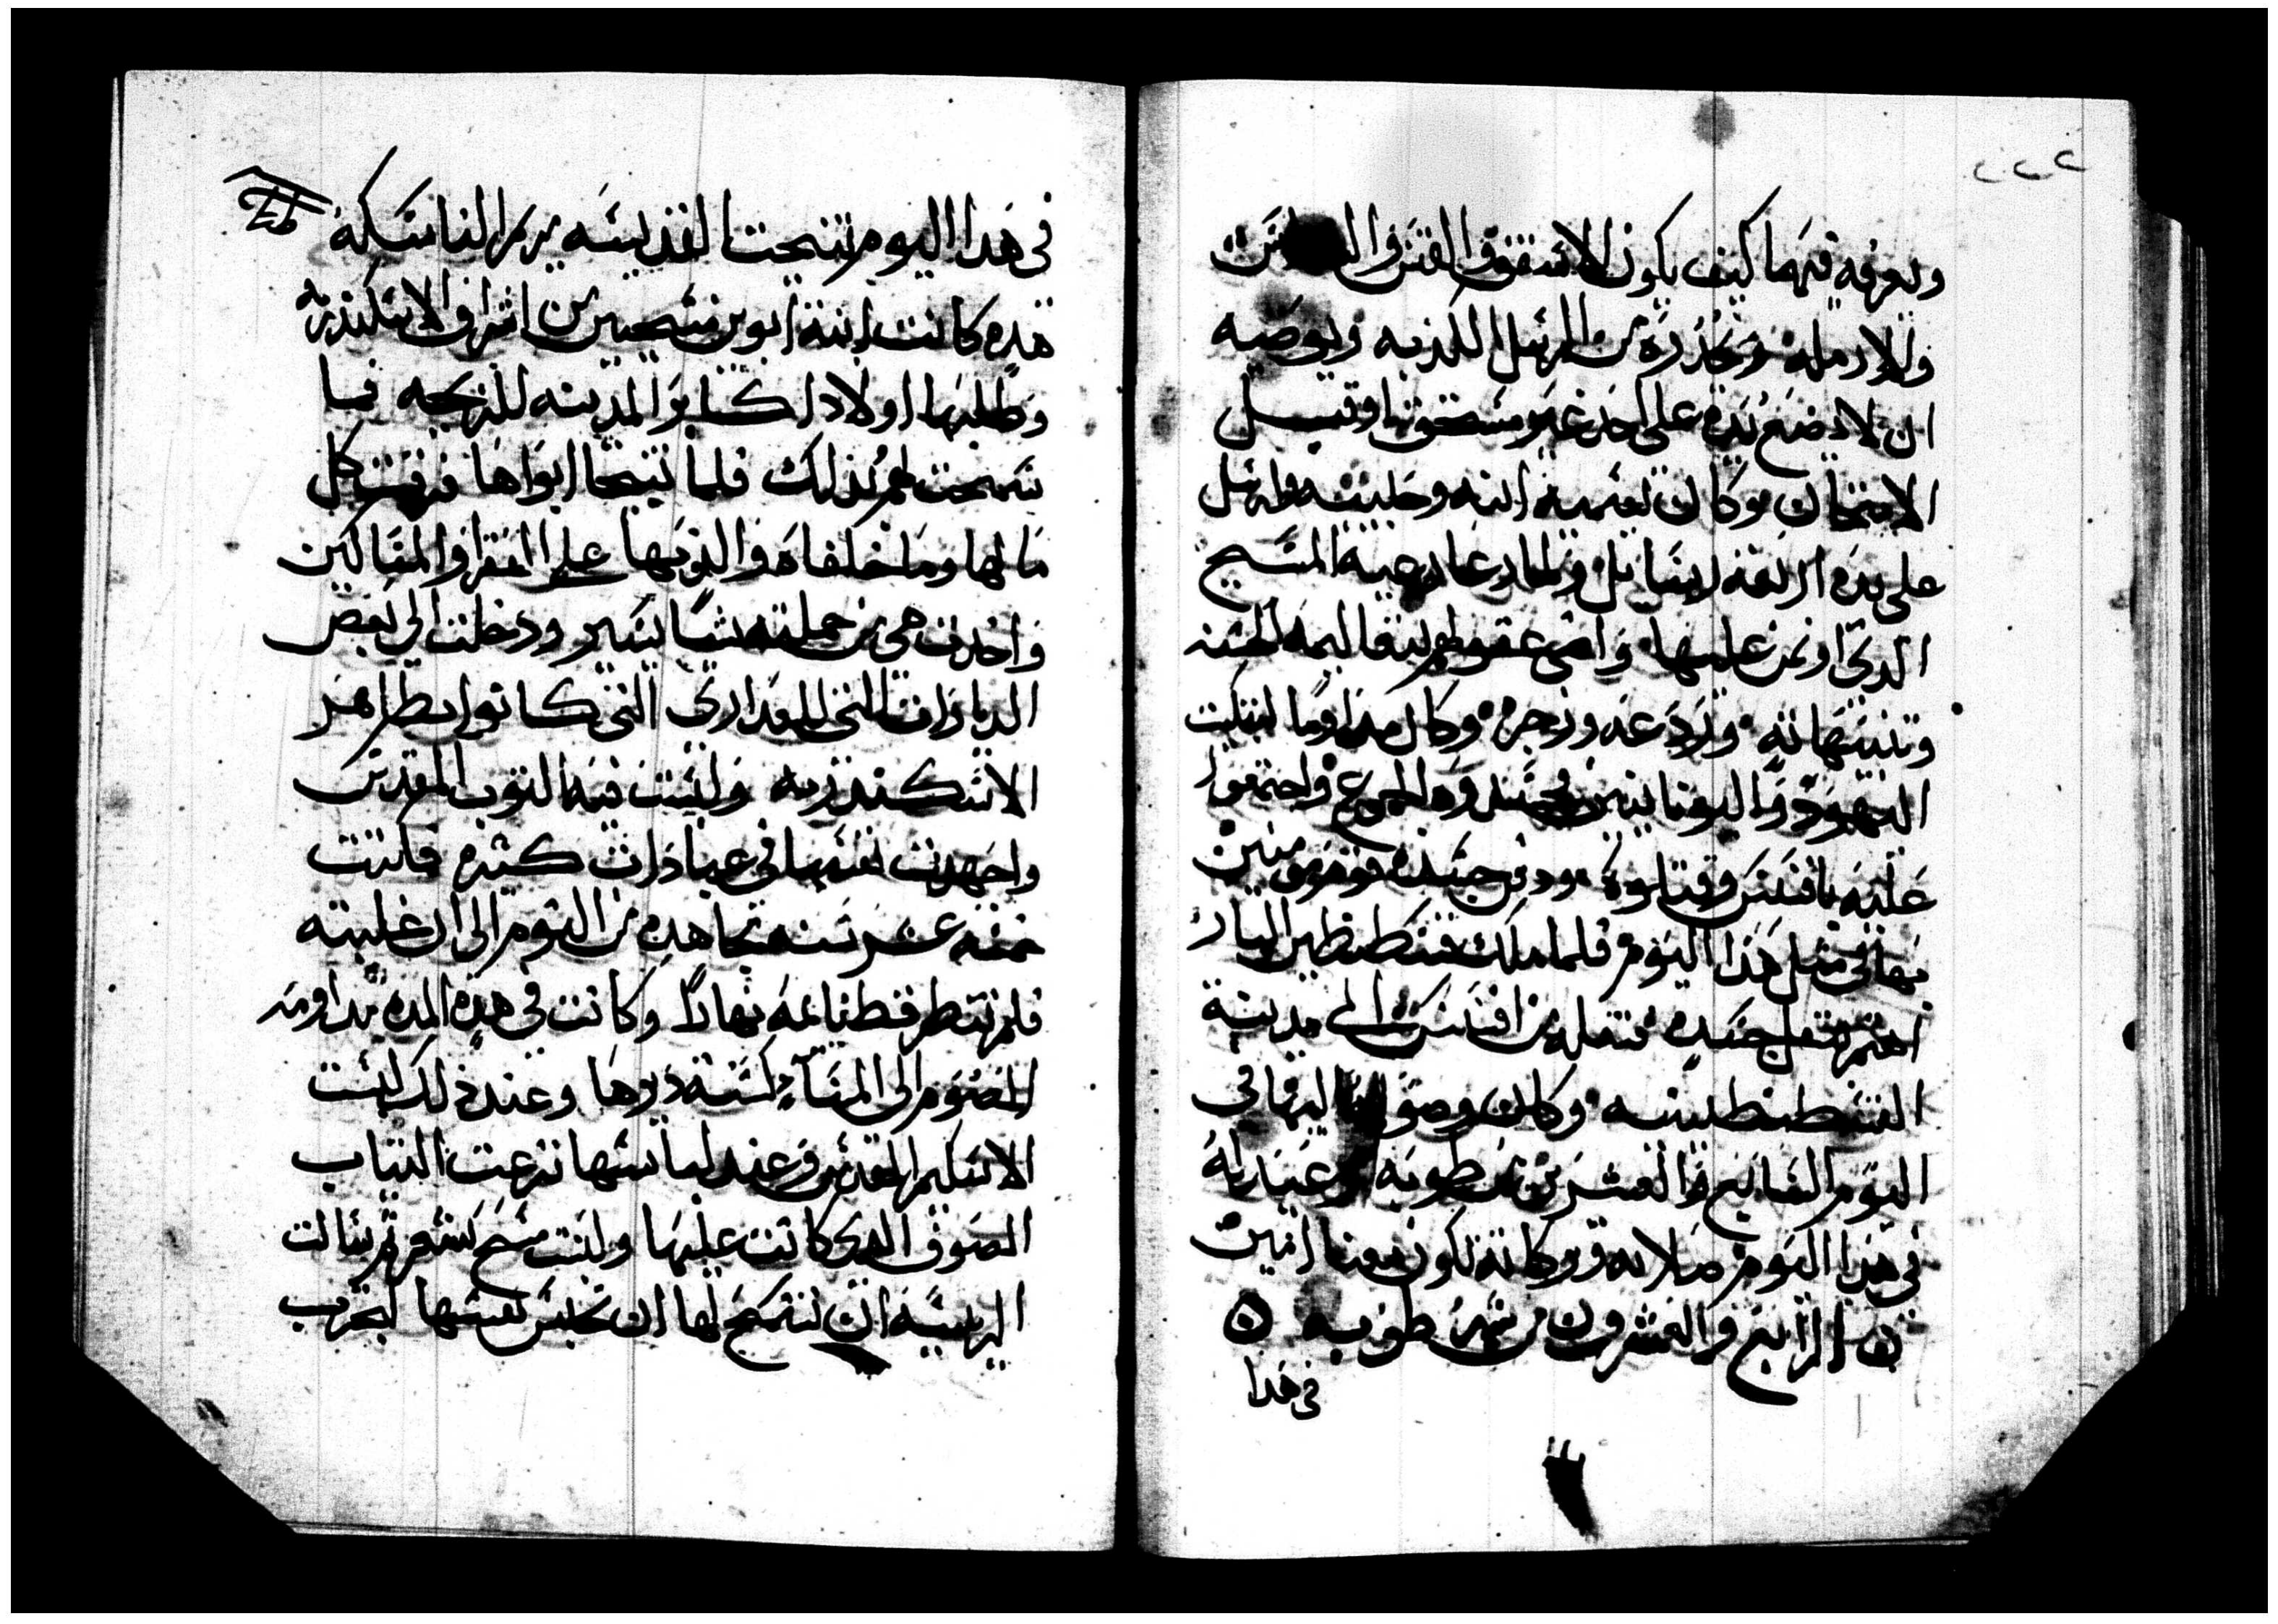 ويعرفه فيهما كيف يكون الاسقف والقس والشماس
والارمله ويحذره من الرسل الكذبه ويوصيه
ان لا يضع يده على احد غير مستحق او قبل
الامتحان وكان تسميه ابنه وحبيبه وارسل
على يده اربعه رسايل ولما رعا رعية المسيح
الدي اوتمن عليها واضى عقولهم بتعاليمه الحسنه
وتنبيهاته وردعه وزجره وكان مداوما لتبكيت
اليهود واليونانيين فحسدوه الجموع واجتمعوا
عليه بافسس وقتلوه ودفن جسده قوم مومنين
بها في مثل هدا اليوم فلما ملك قسطنطين البار
اهتم بنقل جسده فنقله من افسس الى مدينة
القسطنطينيه وكان وصوله اليها في
اليوم السابع والعشرين من طوبه وعيد له
في هدا اليوم صلاته وبركاته تكون معنا امين
الرابع والعشرون من شهر طوبه
في هدا
في هدا اليوم تنيحت القديسه مريم الناسكه
هده كانت ابنة ابوين مسيحيين من اشراف الاسكندريه
وطلبها اولاد اكابر المدينه للزيجه فما
سمحت لهم بذلك فلما تنيحا ابواها فرقت كل
مالها وما خلفاه والديها على الفقرا والمساكين
واخذت هي من جملته شيا يسير ودخلت الى بعض
الديارات التي للعداري التي كانوا بظاهر
الاسكندريه ولبست فيه التوب المقدس
واجهدت نفسها في عبادات كثيره فلبتت
خمسه عشر سنه تجاهد من الصوم الى ان غلبته
فلم تنظر قط طاعمه نهارا وكانت في هده المده مداومه
الصوم الى المسا كسنة ديرها وعند ذلك لبست
الاسكيم المقدس وعند لباسها نزعت التياب
الصوف الدي كانت عليها ولبست مسح شعر تم سالت
الريسه ان تسمح لها ان تحبس نفسها لتقرب